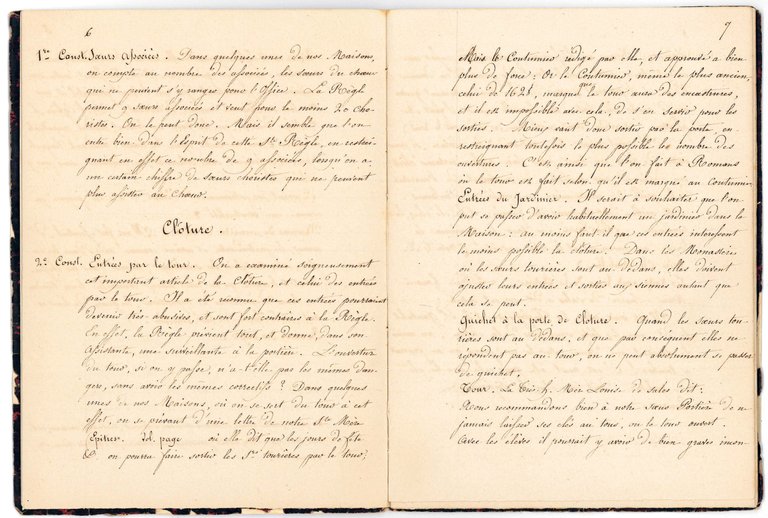 6
1re Const. Sœurs Associées. Dans quelques unes de nos Maisons,
on compte au nombre des associées, les sœurs du chœur
qui ne peuvent s'y ranger pour l'Office. La Règle
permet 9 sœurs associées et veut pour le moins 20 cho-
ristes. On le peut donc. Mais il semble que l'on
entre bien dans l'esprit de cette Ste Règle, en restrei-
gnant en effet ce nombre de 9 associées, lorsqu'on a
un certain chiffre de sœurs choristes qui ne peuvent
plus assister au Chœur.
Clôture.
2e Const. Entrées par le tour. On a examiné soigneusement
cet important article de la Clôture, et celui des entrées
par le tour. Il a été reconnu que ces entrées pourraient
devenir très-abusives, et sont fort contraires à la Règle.
En effet, la Règle prévient tout, et donne, dans son
Assistante, une surveillante à la portière. L'ouverture
du tour, si on y passe, n'a-t-elle pas les mêmes dan-
gers, sans avoir les mêmes correctifs? Dans quelques
unes de nos Maisons, où on se sert du tour à cet
effet, on se prévaut d'une lettre de notre Ste Mère
Epitres. Vol. page où elle dit que les jours de fête
&c on pourra faire sortir les Srs tourières par le tour;
7
Mais le Coutumier rédigé par elle, et approuvé a bien
plus de force: Or le Coutumier, même le plus ancien,
celui de 1628, marque que le tour aura des encastrures,
et il est impossible avec cela, de s'en servir pour les
sorties. Mieux vaut donc sortir par la porte, en
restreignant toutefois le plus possible le nombre des
ouvertures. C'est ainsi que l'on fait à Romans
où le tour est fait selon qu'il est marqué au Coutumier.
Entrées du Jardinier. Il serait à souhaiter que l'on
put se passer d'avoir habituellement un jardinier dans la
Maison: au moins faut il que ces entrées intéressent
le moins possible la clôture! Dans les Monastères
où les sœurs tourières sont au dedans, elles doivent
ajuster leurs entrées et sorties aux siennes autant que
cela se peut.
Guichet à la porte de Clôture. Quand les sœurs tou-
rières sont au dedans, et que par conséquent elles ne
répondent pas au tour, on ne peut absolument se passer
de guichet.
Tour. La très h. Mère Louise de Sales dit:
Nous recommandons bien à notre sœur Portière de ne
jamais laisser ses clés au tour, ou le tour ouvert.
Avec les élèves il pourrait y avoir de bien graves incon-